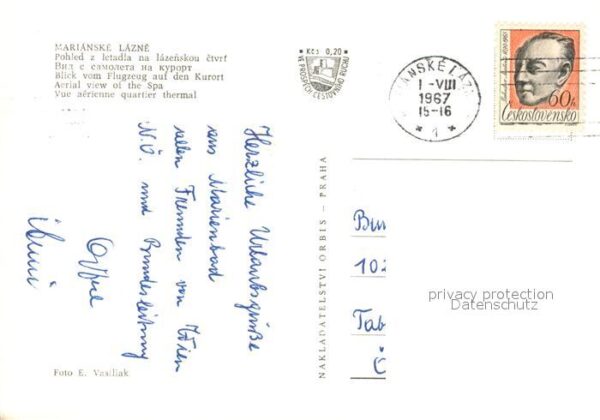 MARIÁNSKÉ LÁZNĚ
Pohled z letadla na lázeňskou čtvrť
Вид с самолета на курорт
Blick vom Flugzeug auf den Kurort
Aerial view of the Spa
Vue aérienne quartier thermal
Kčs 0,20
VE PROSPĚCH CESTOVNÍHO RUCHU
MARIÁNSKÉ LÁZNĚ
1-VIII
1967
15-16
* 1 *
60 h
Československo
Herzliche Urlaubsgrüße
aus Marienbad
allen Freunden von Wien
N.Ö. und Bundesleitung
NAKLADATELSTVÍ ORBIS — PRAHA
Bun
102
Tab
Č
privacy protection
Datenschutz
Foto E. Vasiliak